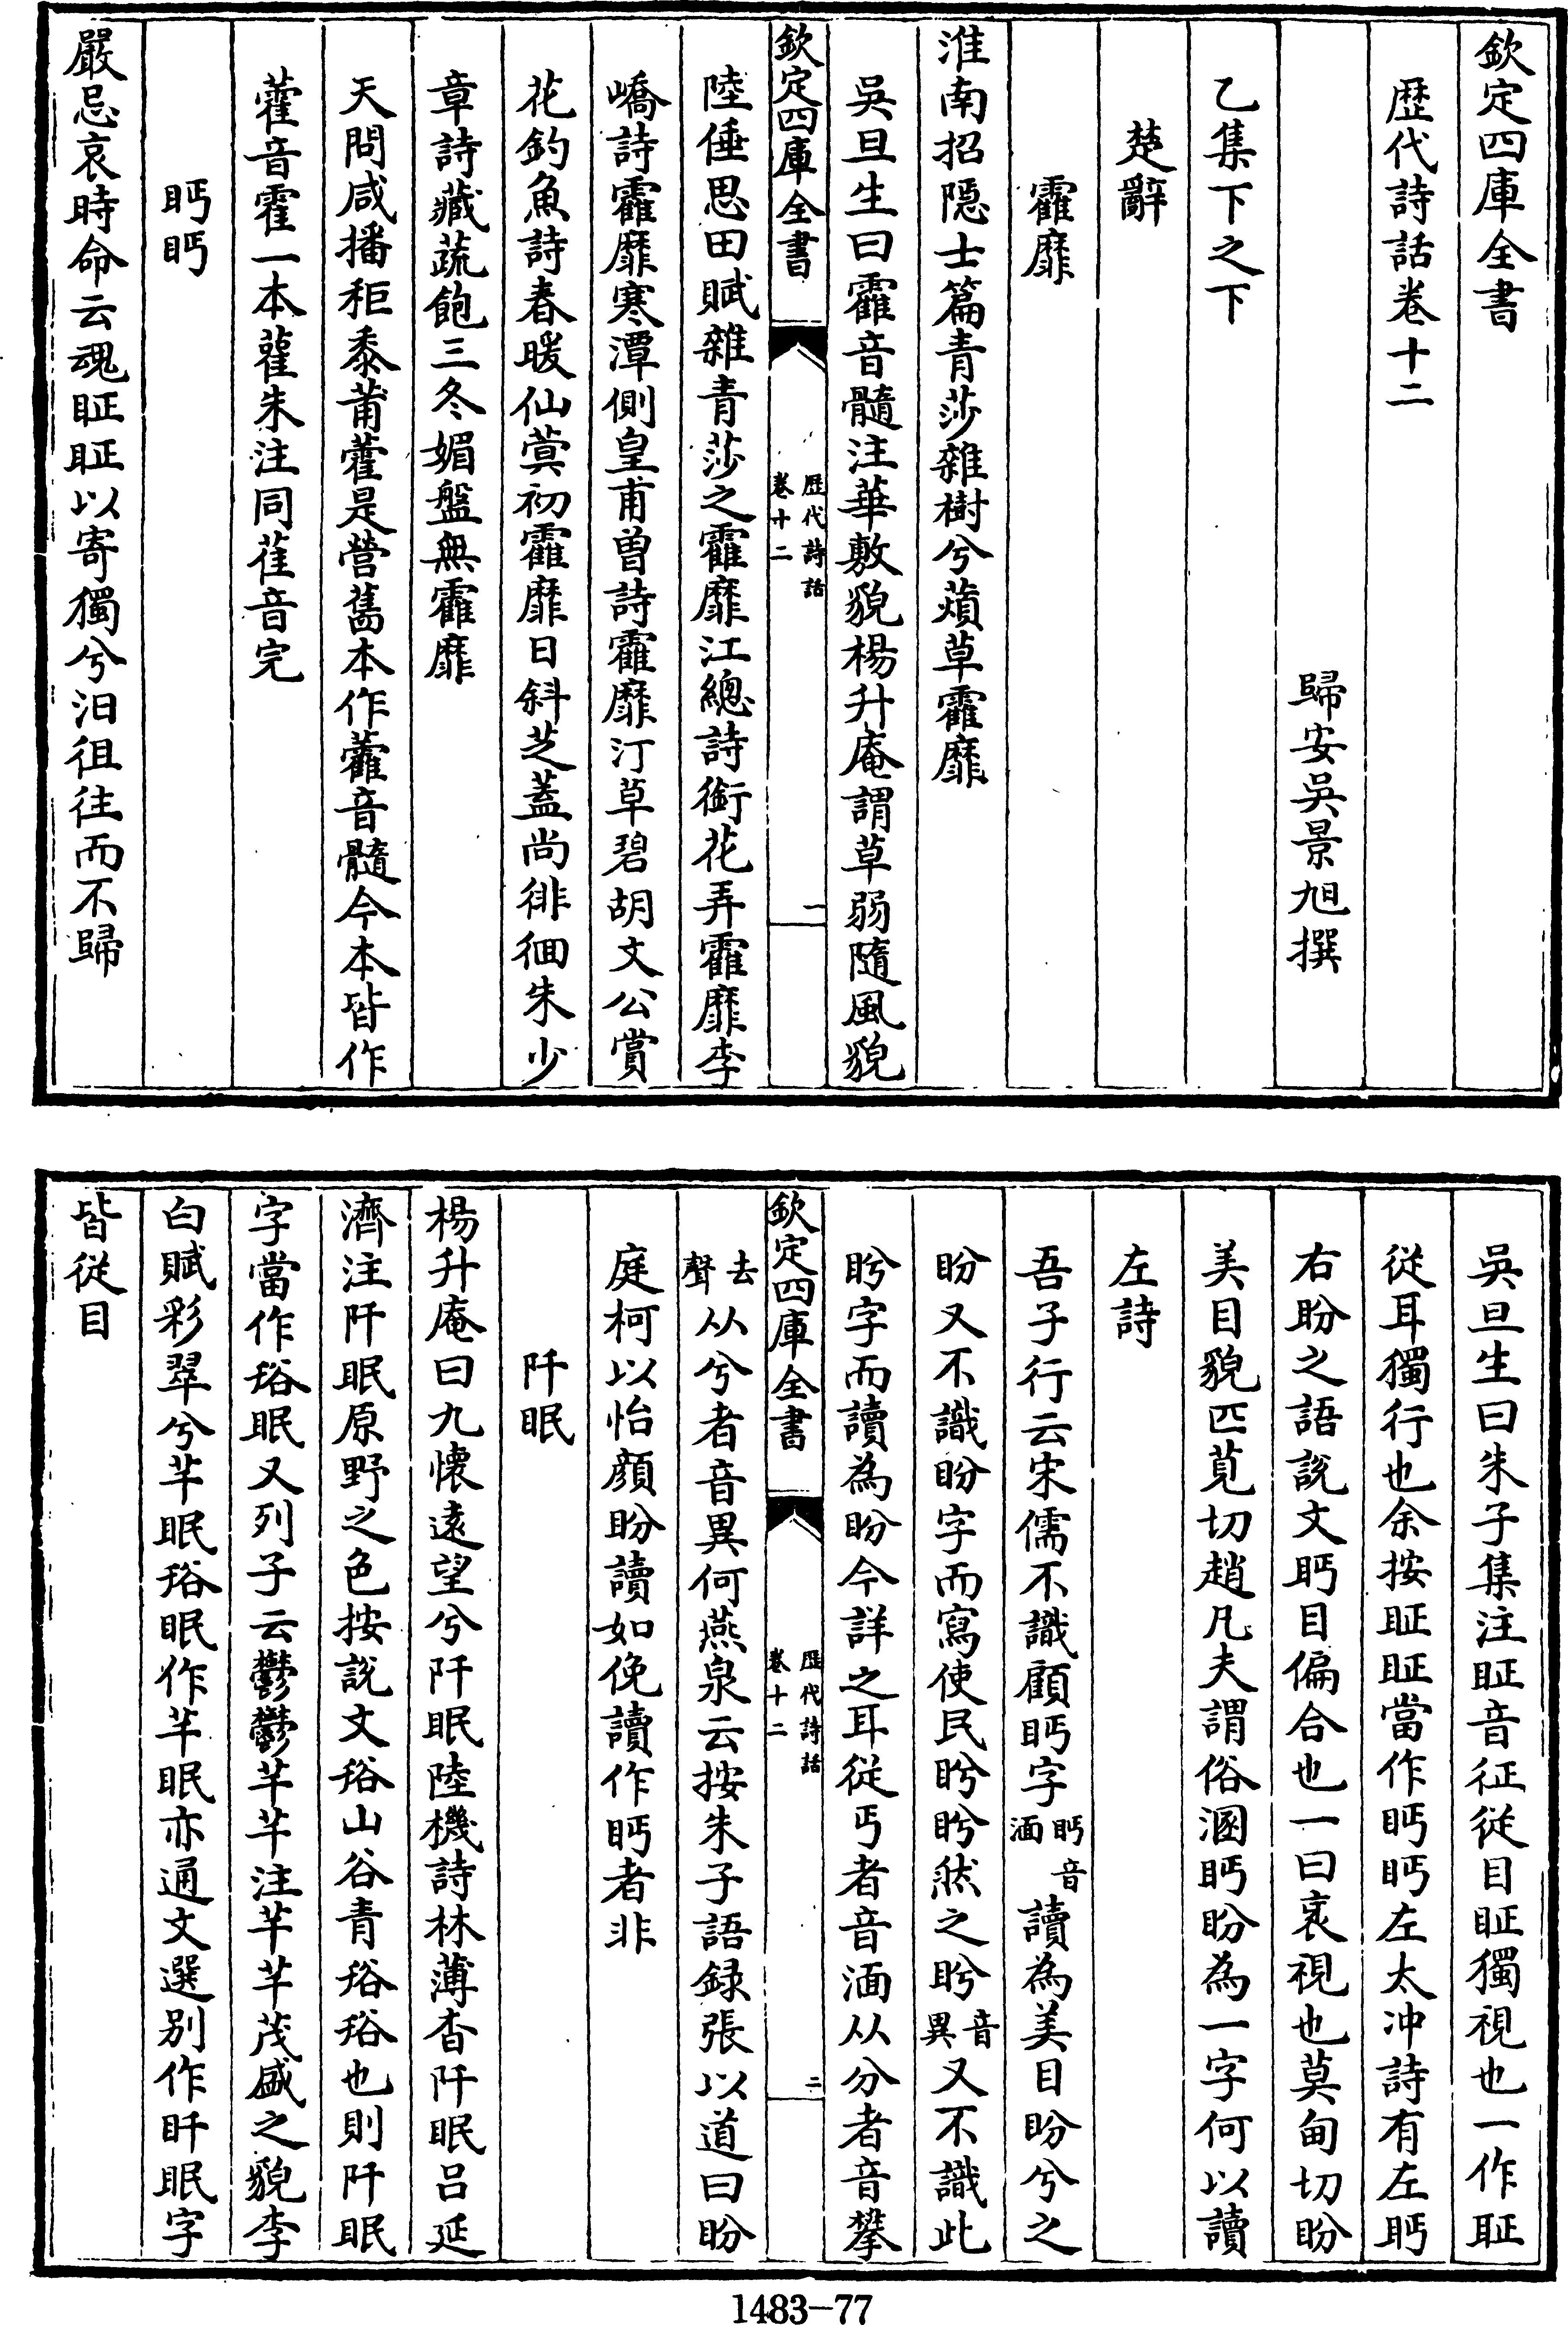 欽定四庫全書
歴代詩話卷十二
歸安吳景旭撰
乙集下之下
楚辭
靃靡
淮南招隱士篇青莎雜樹兮薠草靃靡
吳旦生曰靃音髓注華敷貌楊升庵謂草弱隨風貌
欽定四庫全書
歴代詩話
卷十二
一
陸倕思田賦雜青莎之靃靡江總詩銜花弄靃靡李
嶠詩靃靡寒潭側皇甫曾詩靃靡汀草碧胡文公賞
花釣魚詩春暖仙蓂初靃靡日斜芝蓋尚徘徊朱少
章詩藏蔬飽三冬媚盤無靃靡
天問咸播秬黍莆雚是營舊本作虇音髓今本皆作
藿音霍一本雚朱注同萑音完
眄眄
嚴忌哀時命云魂眐眐以寄獨兮汨徂往而不歸
吳旦生曰朱子集注眐音征從目眐獨視也一作䀼
從耳獨行也余按眐眐當作眄眄左太冲詩有左眄
右盼之語說文眄目偏合也一曰衺視也莫甸切盼
美目貌匹莧切趙凡夫謂俗溷眄盼為一字何以讀
左詩
吾子行云宋儒不識顧眄字眄音湎讀為美目盼兮之
盼又不識盼字而寫使民盻盻然之盻音異又不識此
盻字而讀為盼今詳之耳從丏者音湎从分者音攀
欽定四庫全書
歴代詩話
卷十二
二
去聲从兮者音異何燕泉云按朱子語録張以道曰盼
庭柯以怡顔盼讀如俛讀作眄者非
阡眠
楊升庵曰九懷遠望兮阡眠陸機詩林薄杳阡眠呂延
濟注阡眠原野之色按說文𧮰山谷青𧮰𧮰也則阡眠
字當作𧮰眠又列子云鬱鬱芊芊注芊芊茂盛之貌李
白賦彩翠兮芊眠𧮰眠作芊眠亦通文選別作盰眠字
皆從目
1483-77